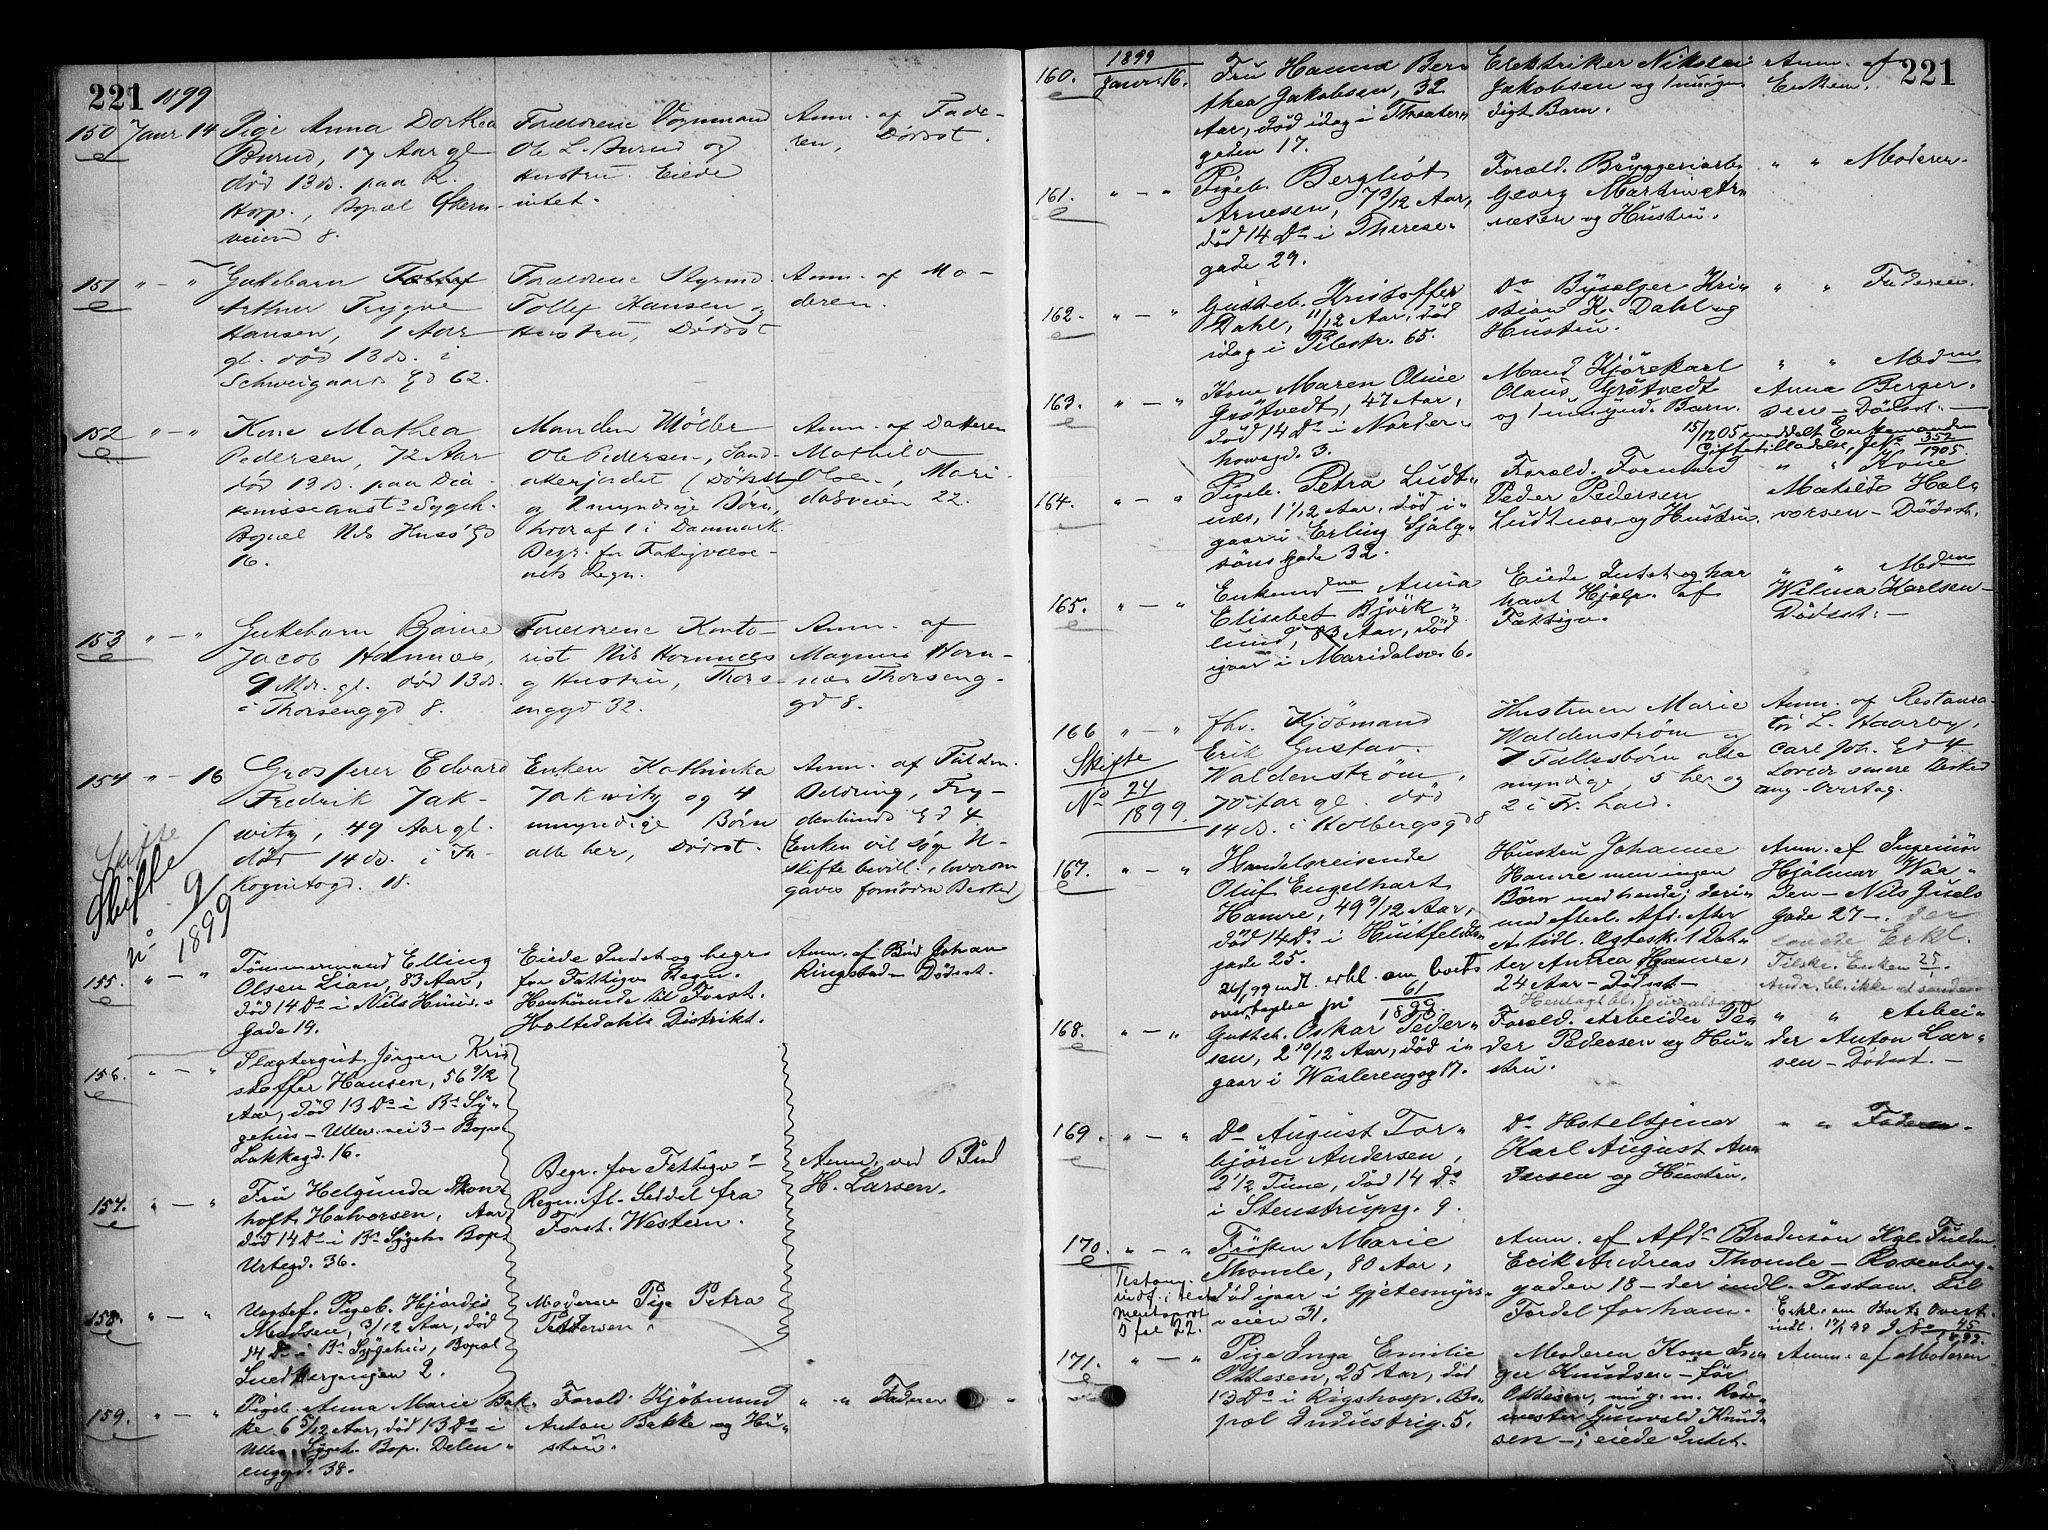 221 1899
150 Janr 14 Pige Anna Dorthea
Burud, 17 Aar gl
død 13 ds. paa R.
Hosp., Bopæl
veien 8.
Forældrene Vognmand
Ole L. Burud og
Hustru. Eiede
intet.
Anm. af Fade-
ren, Dødsst.
151 " - " Guttebarn
Arthur Trygve
Hansen, 1 Aar
gl. død 13 ds. i
Schweigaards Gd 62.
Forældrene Styrmd.
Tolly Hansen og
Hustru, Dødsst
Anm. af Mo-
deren.
152 " - " Kone Mathea
Pedersen, 72 Aar
død 13 ds. paa Dia-
konisseanst.s Sygeh.
Bopæl Nils Huus' Gd
16.
Manden Møller
Ole Pedersen, Sand-
akerjordet (Dødsst
og 2 myndige Børn,
hvoraf 1 i Danmark
Begr. for Fattigvæse-
nets Regn.
Anm. af Datteren
Mathilde
Olsen, Mari-
dasveien 22.
153 " - " Guttebarn Bjarne
Jacob Hornnes,
9 Mdr. gl. død 13 ds.
i Thorsenggd 8.
Forældrene Konto-
rist Nils Hornnes
og Hustru, Thors-
enggd 32.
Anm. af
Magnus Horn-
nes Thorseng-
gd 8.
154 " - 16 Grosserer Edvard
Fredrik Jak-
witz, 49 Aar gl.
død 14 ds. i Fr.
Kognetsgd. 18.
Enken Kathinka
Jakwitz og 4
umyndige Børn
alle her, Dødsst.
Anm. af Fuldm.
Beldring, Fry-
denlunds Gd 4
(Enken vil søge U-
skifte bevill., hvorom
gaves fornøden Besked)
Skifte
No 9
1899
155. " - " Tømmermand Elling
Olsen Lian, 83 Aar,
død 14 Ds i Nils Huus-
Gade 19.
Eiede Intet og begr.
for Fattigv. Regn.
Henhørende til Forst.
Holtedahls Distrikt.
Anm. af Bud Johan
Ringstad - Dødsst.
156. " - " Slagtergut. Jørgen Kri
stoffer Hansen, 56 9/12
Aar, død 13 Ds i Bs Sy-
gehus - Ullev. vei 3 - Bopæl
Lakkegd. 16.
157. " - " Fru Helgunda Skon-
hoft Halvorsen, Aar,
død 14 Ds i Bs Sygeh. Bopæl
Urtegd. 36.
Begr. for Fattigv.s
Regn. fl. Seddel fra
Forst. Western.
Anm. ved Bud
H. Larsen.
158. " - " Uægtef. Pigeb. Hjørdis
Madsen, 3/12 Aar, død
14 Ds i Bs Sygehus, Bopæl
2.
Moderen Pige Petra
Pettersen.
159. " - " Pigeb. Anna Marie Bak-
ke. 6 5/12 Aar, død 13 Ds i
Ullev. Sygeh. Bop. Dælen-
enggd. 38.
Foræld. Kjøbmand
Anton Bakke og Hu-
stru.
" " Faderen
221
1899
160. Janr. 16. Fru Hanna Ber-
thea Jakobsen, 32
Aar, død idag i Theater-
gaden 17.
Elektriker Nikolai
Jakobsen og 1 umyn-
digt Barn.
Anm. af
Enken.
161. " - " Pigeb. Bergliot
Arnesen, 7 3/12 Aar,
død 14 Ds i Therese-
gade 29.
Foræld. Bryggeriarb.
Georg Martin Ar-
nesen og Hustru.
" " Moderen.
162. " - " Gutteb. Kristoffer
Dahl, 11/12 Aar, død
idag i Pilestr. 65.
Ds Bysælger Kri-
stian K. Dahl og
Hustru.
" " Faderen.
163. " - " Kone Maren Oline
Grøtvedt, 47 Aar,
død 14 Ds i Norder-
hovsgd. 3.
Mand Kjørekarl
Olaus Grøtvedt
og 1 umynd. Barn.
" " Madme
Anna Berger-
sen - Dødsst. -
15/12 05 meddelt Enkemanden
Giftetilladelse, J.No 352
1905.
164. " - " Pigeb. Petra Ludt-
næs, 1 1/12 Aar, død i-
gaar i Erling Sjalg-
søns Gade 32.
Foræld. Formand
Peder Pedersen
Ludtnæs og Hustru.
" " Kone
Matilde Hal-
vorsen - Dødsst.
165. " - " Enkemdme Anna
Elisabet Bjørk-
lund, 83 Aar, død
igaar i Maridalsv. 6.
Eiede Intet og har
havt Hjælp af
Fattigv.
" " Madme
Wilma Karlsen -
Dødsst. -
166 " - " fhv. Kjømand
Erik Gustav
Waldenstrøm,
70 Aar gl. død
14 ds. i Kolbergsgd 8
Hustruen Marie
Waldenstrøm og
7 Fællesbørn alle
myndige, 5 her og
2 i Fr.hald.
Anm. af Restaura-
tør L. Haarby,
Carl Joh. Gd 4.
Lovede senere Besked
ang. Overtag.
Skifte
No 24
1899.
167. " - " Handelsreisende
Oluf Engelhart
Hamre, 49 9/12 Aar,
død 14 Ds i Huitfeldts-
gade 25.
26/1 99 indl. erkl. om boets
overtagelse jn 61
1899
Hustru Johanne
Hamre men ingen
Børn med hende; deri-
mod efterl. Afd. efter
et tidl. Ægtesk. 1 Dat-
ter Andrea Hamre,
24 Aar - Dødsst. -
Anm. af Ingeniør
Hjalmar Waa-
den - Nils Juels
Gade 27 -. der
lovede Erkl.
Tilskr. Enken 25/1.
168. " - " Gutteb. Oskar Peder-
sen, 2 10/12 Aar, død i-
gaar i Waalerenggd 17.
Foræld. Arbeider Pe-
der Pedersen og Hu-
stru.
" " Arbei-
der Anton Lar-
sen - Dødsst. -
169. " - " Ds August Tor-
bjørn Andersen,
2 1/2 Time, død 14 Ds
i Stenstrupsg. 9.
Ds Hoteltjener
Karl August An-
dersen og Hustru.
" " Faderen.
170. " - " Frøken Marie
Thomle, 80 Aar,
død igaar i Gjetemyrs-
veien 31.
Testam.
indf. i Testa-
mentsprot.
Anm. af Afds Brodersøn Kgl. Fuldm.
Erik Andreas Thomle - Rosenborg-
gaden 18 - der indl. Testam. til
Fordel for ham.
Erkl. om Boets Overt.
indl. 17/1 99 J.No 45
1899.
171. " - " Pige Inga Emilie
Ottesen, 25 Aar, død
13 Ds i Rigshosp. Bo-
pæl Industrig. 5.
Moderen Kone In-
ger Knudsen - før
Ottesen, nu g. m. Rode-
mester Gunvald Knud-
sen -; eiede Intet.
Anm. af Moderen.